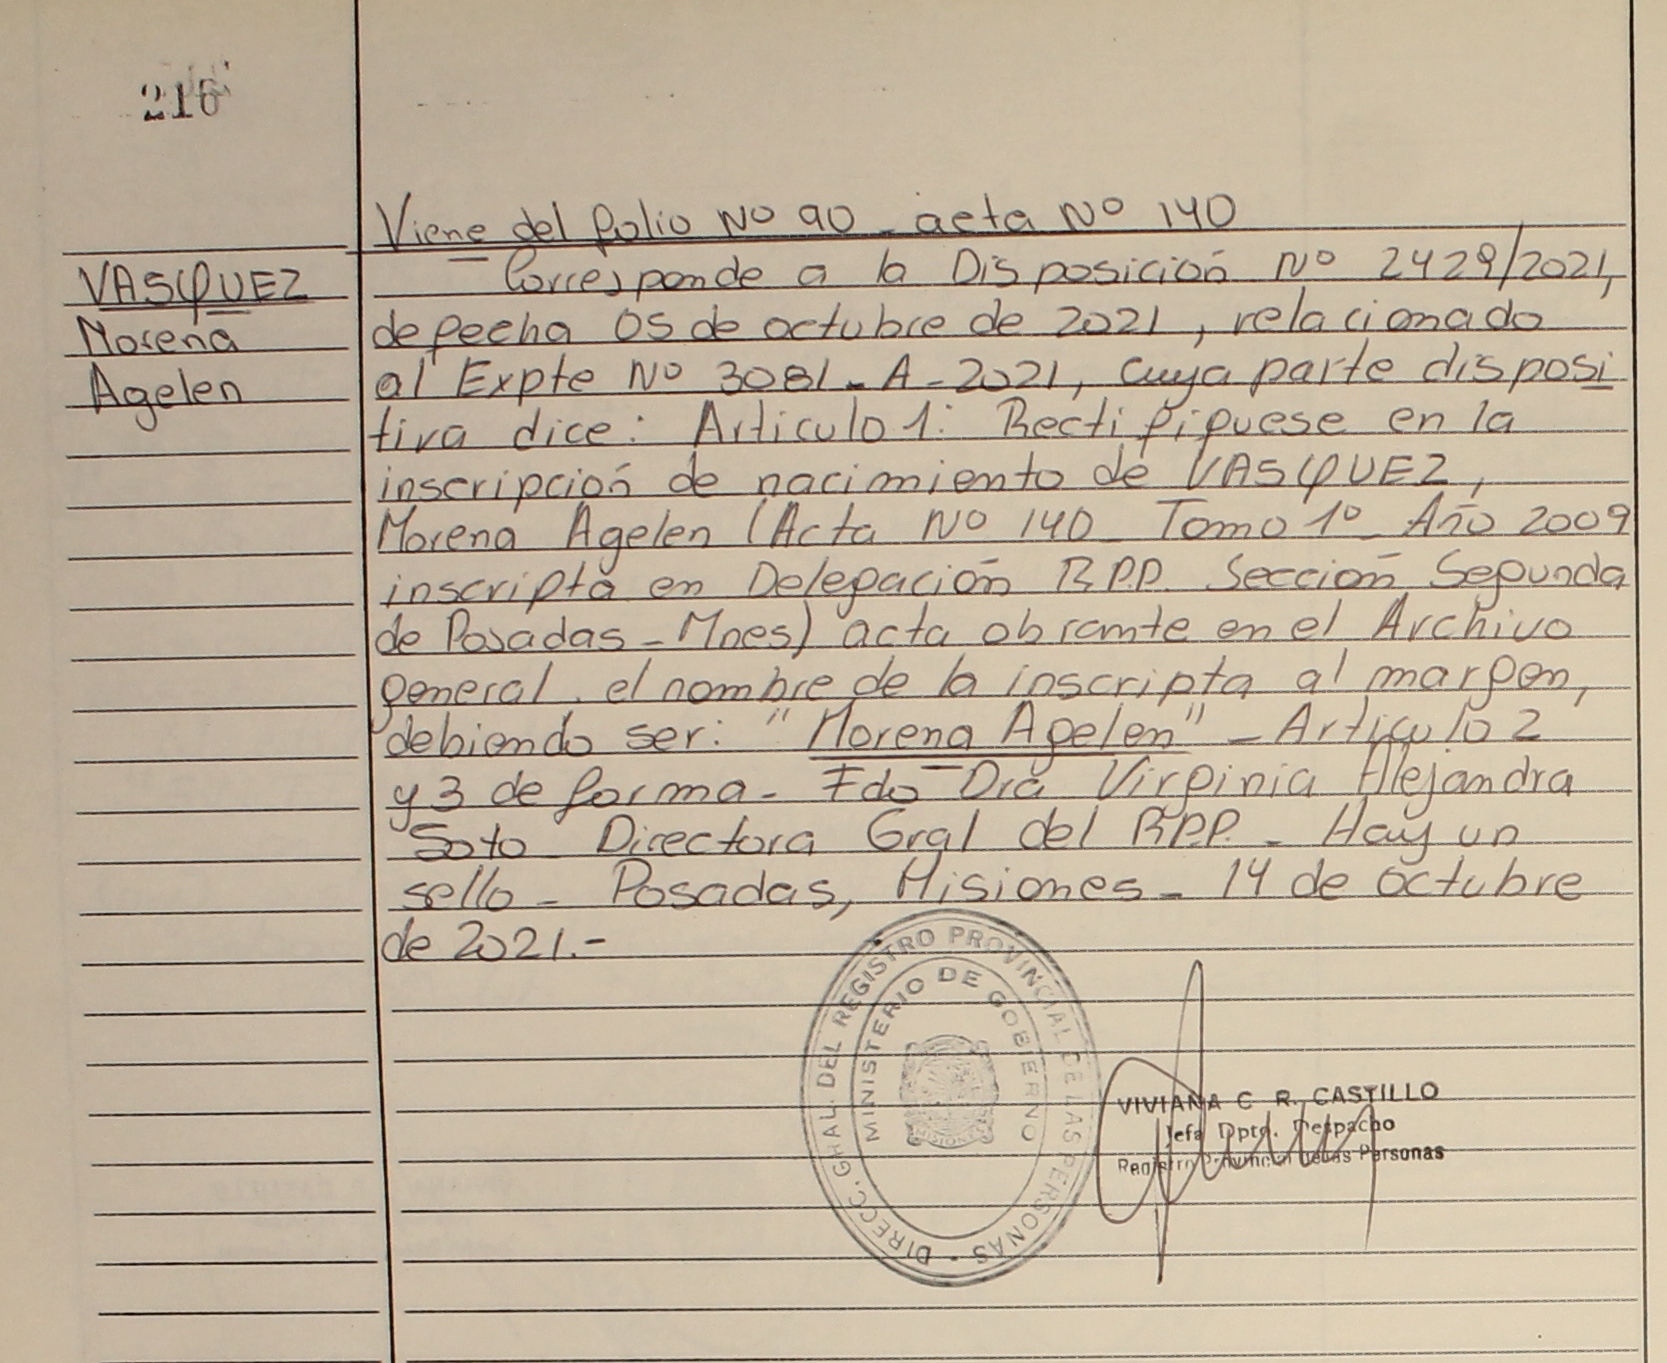 216
Viene del folio Nº 90 - acta Nº 140
VASQUEZ
Morena
Agelen
Corresponde a la Disposición Nº 2429/2021,
de fecha 05 de octubre de 2021, relacionado
al Expte Nº 3081-A-2021, cuya parte disposi
tiva dice: Articulo 1: Rectifiquese en la
inscripción de nacimiento de VASQUEZ,
Morena Agelen (Acta Nº 140 Tomo 1º Año 2009
inscripta en Delegación R.P.P. Sección Segunda
de Posadas - Mnes) acta obrante en el Archivo
general, el nombre de la inscripta al margen,
debiendo ser: "Morena Agelen" - Articulo 2
y 3 de forma - Fdo Dra Virginia Alejandra
Soto Directora Gral del R.P.P. - Hay un
sello - Posadas, Misiones - 14 de octubre
de 2021.-
DIRECC. GRAL. DEL REGISTRO PROVINCIAL DE LAS PERSONAS -
MINISTERIO DE GOBIERNO
MISIONES
VIVIANA C R. CASTILLO
Jefa Dpto. Despacho
Registro Provincial de las Personas